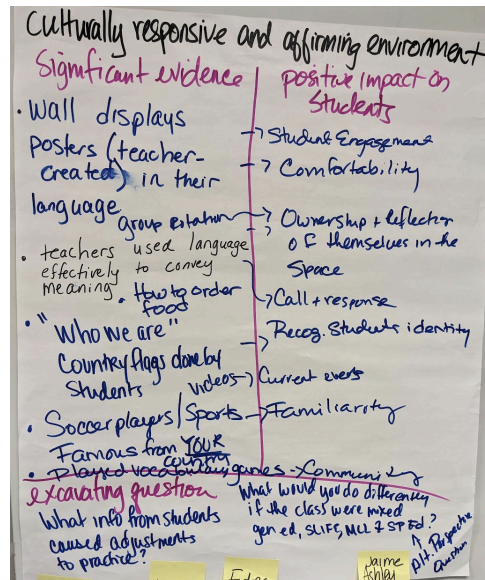 Culturally responsive and affirming environment
Significant evidence
• Wall displays
posters (teacher-
created) in their
language
group rotation
• teachers used language
effectively to convey
meaning
• How to order
food
• "Who we are"
Country flags done by
Students
videos
• Soccer players/Sports
Famous from YOUR
country
• Played vocabulary games → Community
positive impact on
Students
→ Student Engagement
→ Comfortability
→ Ownership + Reflection
of themselves in the
Space
→ Call + response
→ Recog. Students identity
→ Current events
→ Familiarity
excavating question
What info from students
caused adjustments
to practice?
What would you do differently
if the class were mixed
gen ed, SLIFE, MLL & SPEd?
Alt. Perspective
Question
Jaime
Ashley